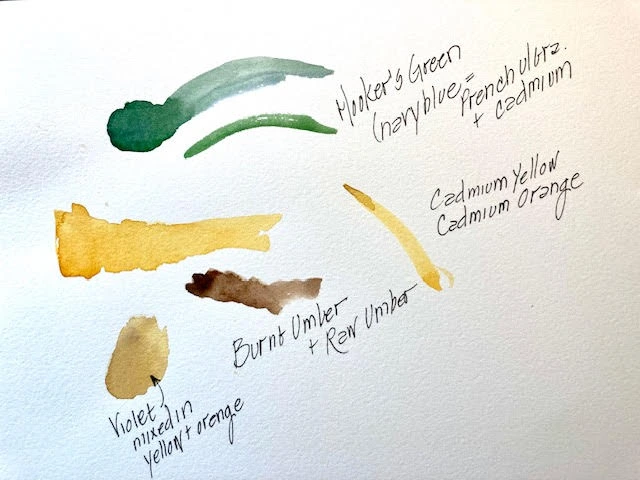 Hooker's Green
(navy blue =
French ultra.
+ Cadmium
Cadmium Yellow
Cadmium Orange
Burnt Umber
+ Raw Umber
Violet
mixed in
yellow + orange